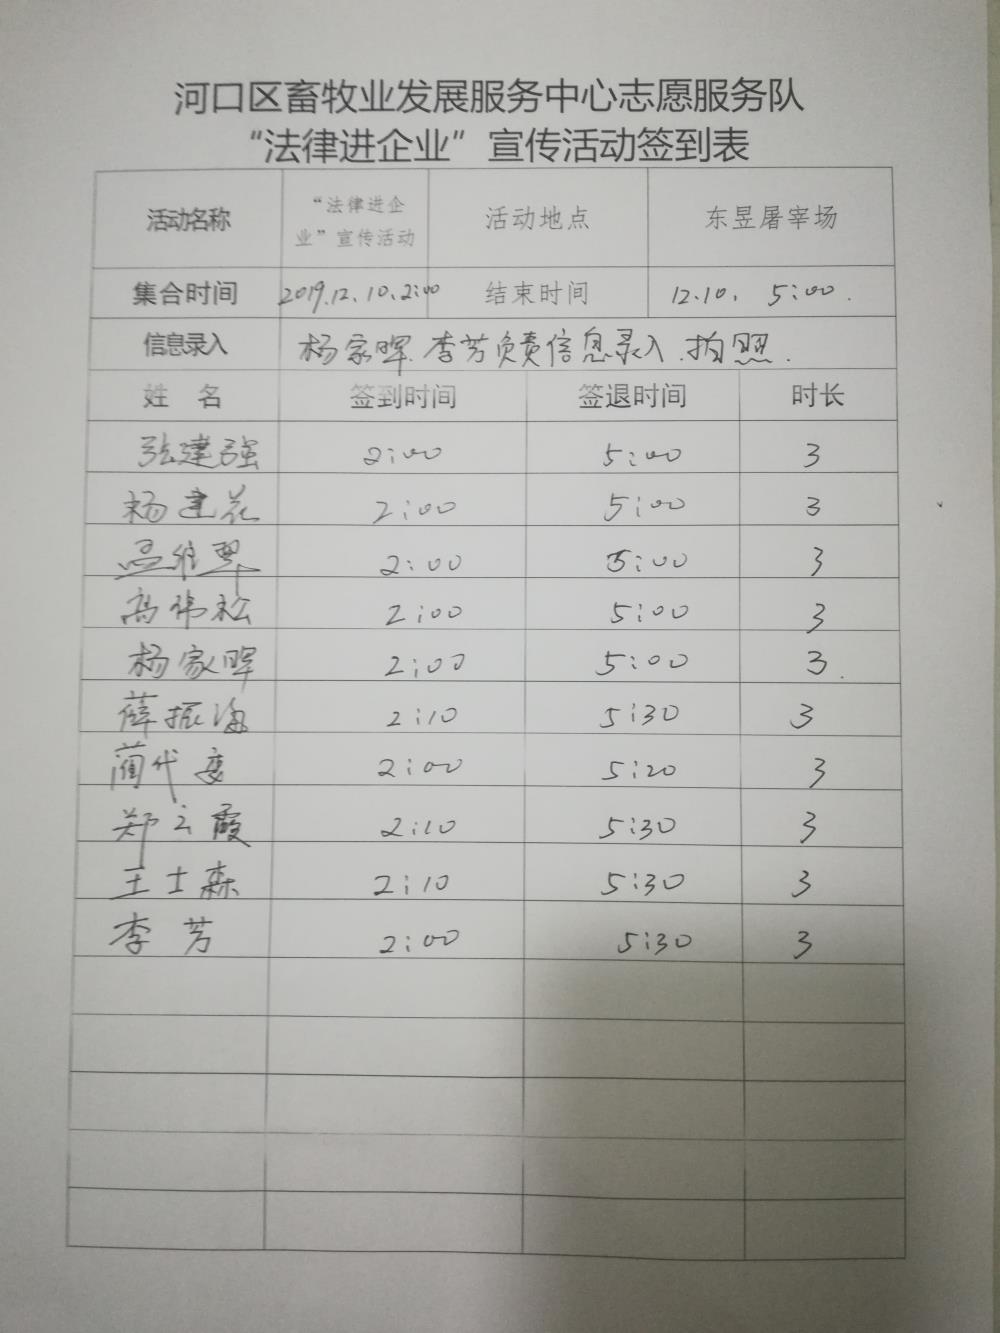 河口区畜牧业发展服务中心志愿服务队
“法律进企业”宣传活动签到表
活动名称 “法律进企业”宣传活动 活动地点 东昱屠宰场
集合时间 2019.12.10.2:00 结束时间 12.10. 5:00.
信息录入 杨家晖.李芳负责信息录入.拍照.
姓 名 签到时间 签退时间 时长
张建强 2:00 5:00 3
杨建花 2:00 5:00 3
2:00 5:00 3
高伟松 2:00 5:00 3
杨家晖 2:00 5:00 3.
薛振海 2:10 5:30 3
蔺代 2:00 5:20 3
郑云霞 2:10 5:30 3
王士森 2:10 5:30 3
李芳 2:00 5:30 3